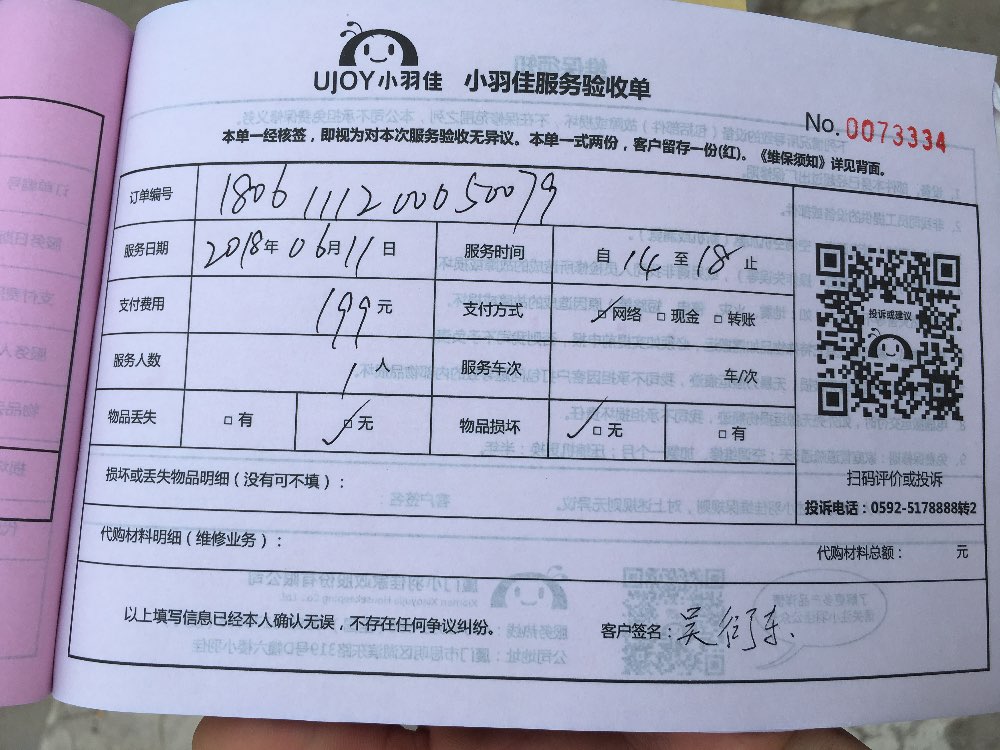 UJOY小羽佳 小羽佳服务验收单
No.0073334
本单一经核签，即视为对本次服务验收无异议。本单一式两份，客户留存一份(红)。《维保须知》详见背面。
订单编号 1806111200050079
服务日期 2018年06月11日 服务时间 自14至18止
支付费用 199元 支付方式 □网络 □现金 □转账
服务人数 1人 服务车次 车/次
物品丢失 □有 □无 物品损坏 □无 □有
投诉或建议
扫码评价或投诉
投诉电话：0592-5178888转2
损坏或丢失物品明细（没有可不填）：
代购材料明细（维修业务）： 代购材料总额： 元
以上填写信息已经本人确认无误，不存在任何争议纠纷。 客户签名：吴衍东